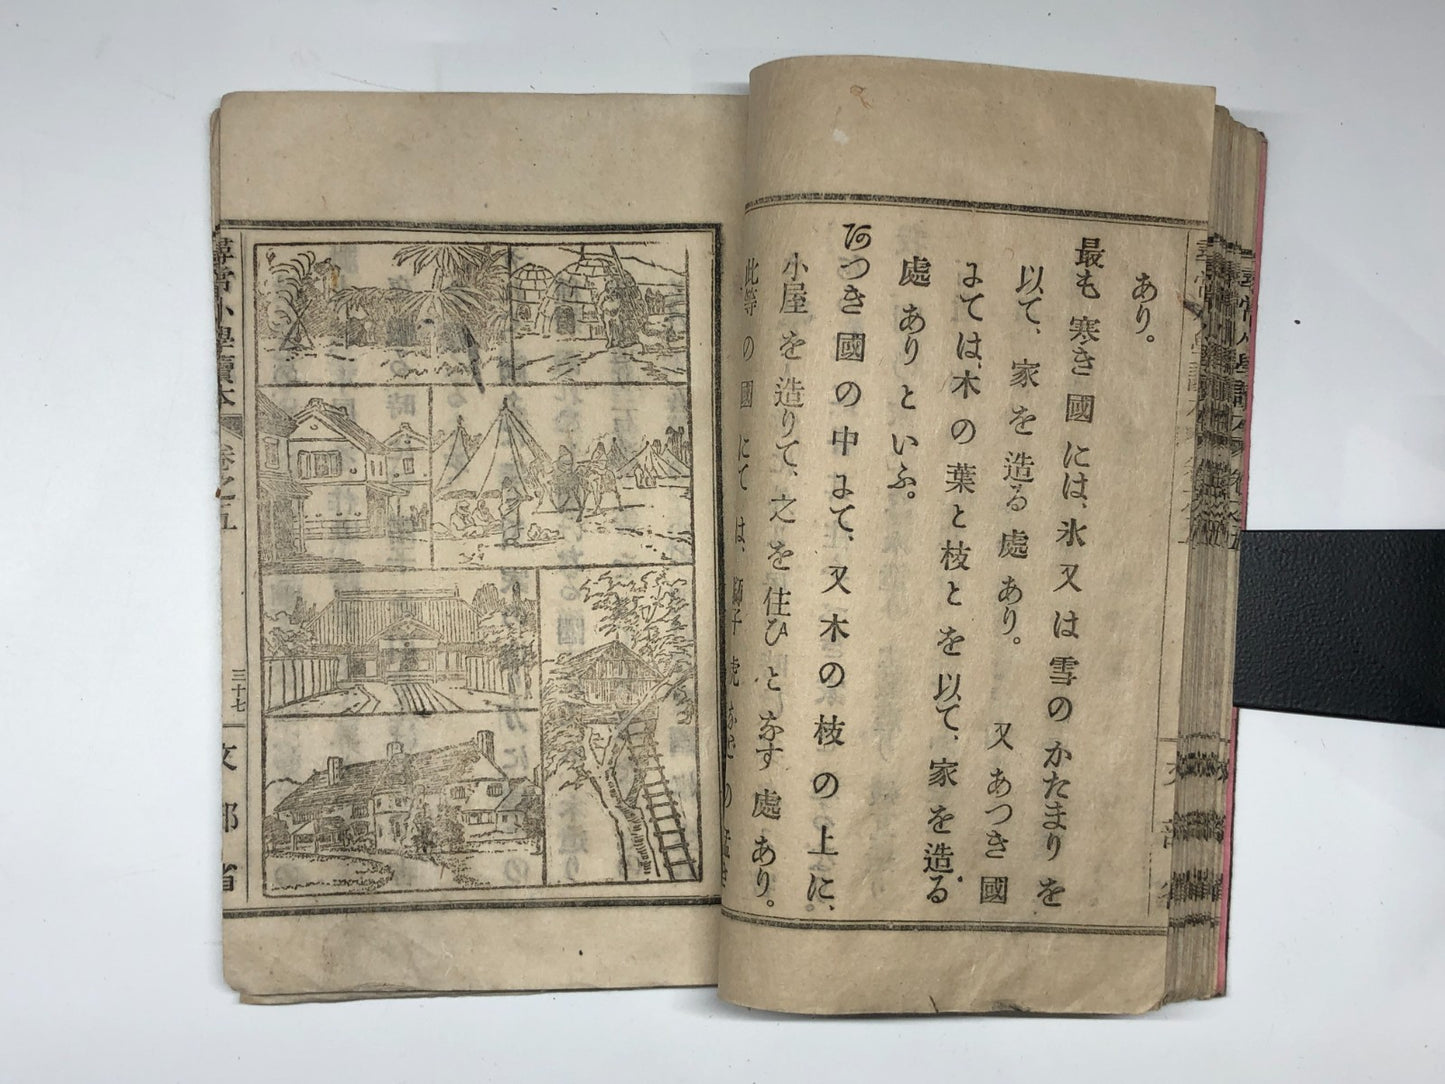 あり。
最も寒き國には、氷又は雪のかたまりを
以て、家を造る處あり。又あつき國
にては、木の葉と枝とを以て、家を造る
處ありといふ。
あつき國の中にて、又木の枝の上に、
小屋を造りて、之を住ひとなす處あり。
此等の國にては、獅子虎などの
尋常小學讀本
卷之五
三十七
文部省